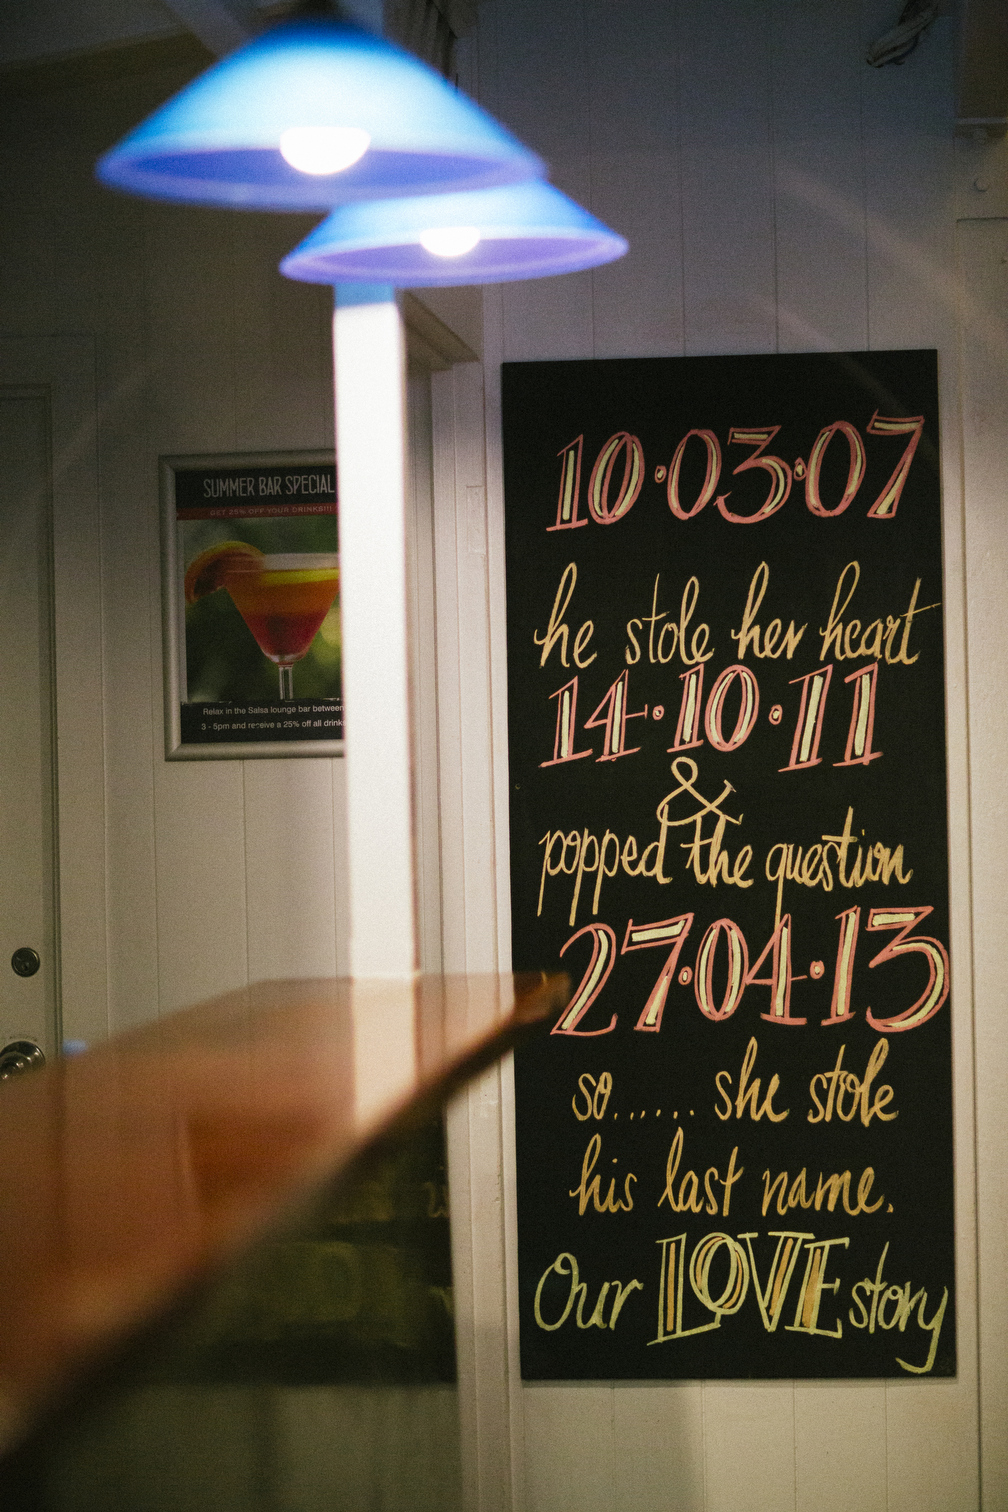 SUMMER BAR SPECIAL
GET 25% OFF YOUR DRINKS!!!
Relax in the Salsa lounge bar between
3 - 5pm and receive a 25% off all drink
10·03·07
he stole her heart
14·10·11
&
popped the question
27·04·13
so...... she stole
his last name.
Our LOVE story